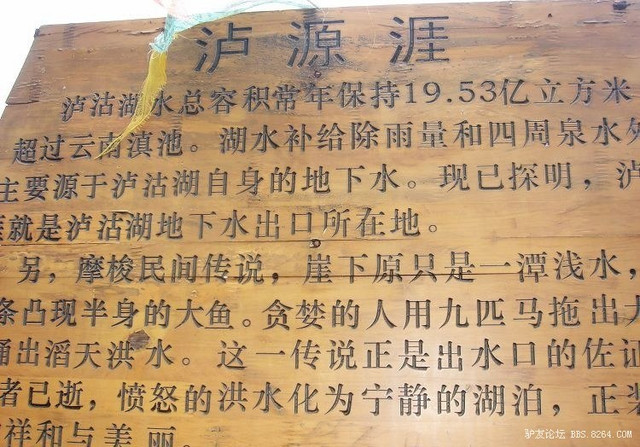 泸源涯
泸沽湖水总容积常年保持19.53亿立方米
超过云南滇池。湖水补给除雨量和四周泉水外
主要源于泸沽湖自身的地下水。现已探明，泸
就是泸沽湖地下水出口所在地。
另，摩梭民间传说，崖下原只是一潭浅水，
条凸现半身的大鱼。贪婪的人用九匹马拖出大
涌出滔天洪水。这一传说正是出水口的佐证
者已逝，愤怒的洪水化为宁静的湖泊，正
祥和与美丽。
驴友论坛 BBS.8264.COM